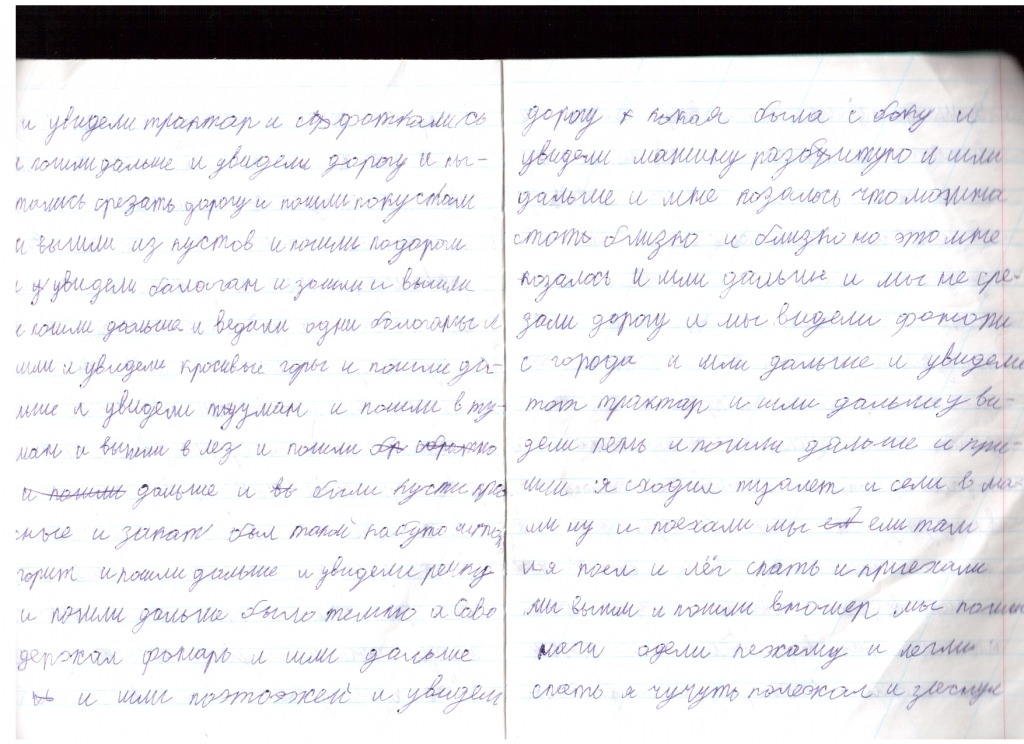 и увидели трактар и сфоткались
и пошли дальше и увидели дорогу и пы-
тались срезать дорогу и пошли покустам
и вышли из кустов и пошли подороги
и увидели балаган и зашли и вышли
и пошли дальше и ведили одни балоганы и
шли и увидели красивые горы и пошли да-
льше и увидели туман и пошли в ту-
ман и вышли в лез и пошли
дальше и были кусти кра
сные и запат был такой как буто
горит и пошли дальше и увидели речку
и пошли дальше было темно а Сава
держал фонарь и шли дальше
и шли поэтойжей и увидели
дорогу кокая была с боку и
увидели машину разбитую и шли
дальше и мне козалось что машина
стоть близко и близко но это мне
козалось и шли дальше и мы не сре-
зали дорогу и мы видели фонори
с города и шли дальше и увидели
тот трактар и шли дальше уви-
дели пень и пошли дальше и при-
шли я сходил туалет и сели в ма-
шину и поехали мы ели там
и я поел и лёг спать и приехали
мы вышли и пошли вномер мы пошли
одели пежаму и легли
спать я чучуть полежал и заснул